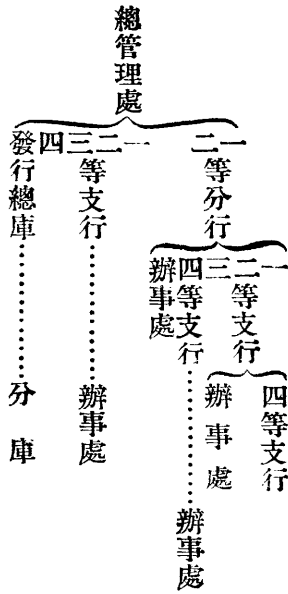 總管理處
一二等分行
一二等支行
四等支行
辦事處
三四等支行………辦事處
辦事處
一二三四等支行………辦事處
發行總庫………分庫